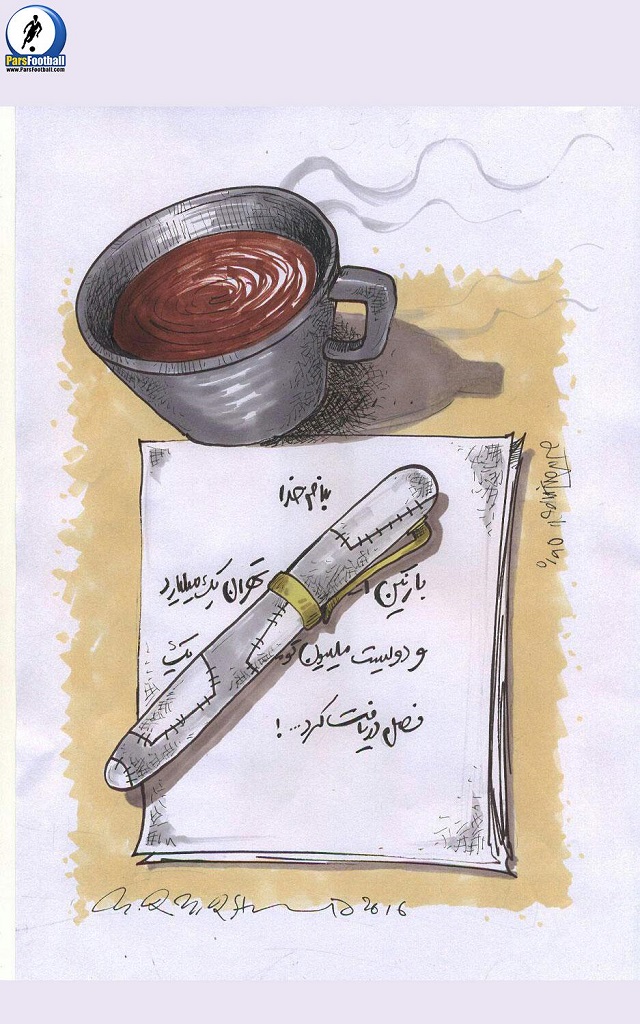 ParsFootball
www.ParsFootball.com
بنام خدا
تهران یک میلیارد
و دویست میلیون یک
فصل دریافت کرد...!
2016